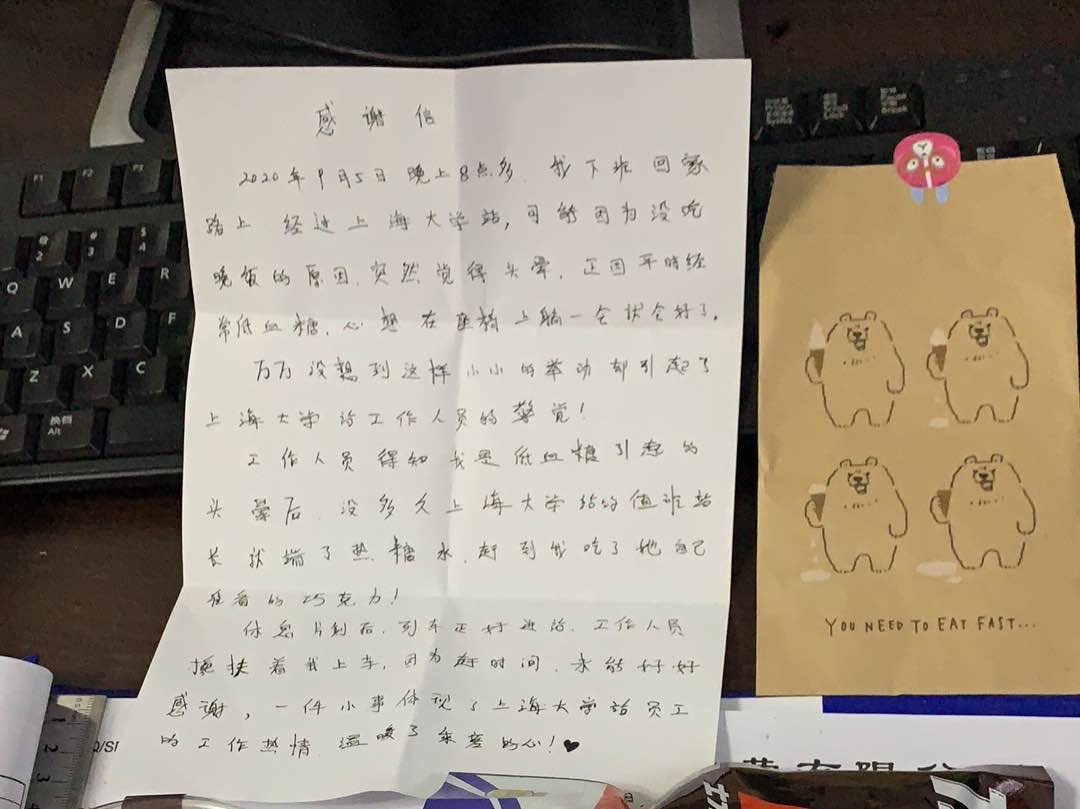 感谢信
2020年9月5日 晚上8点多，我下班回家
路上 经过上海大学站，可能因为没吃
晚饭的原因，突然觉得头晕，正因平时经
常低血糖，心想在座椅上躺一会状会好了。
万万没想到这样小小的举动却引起了
上海大学站工作人员的警觉！
工作人员得知我是低血糖引惹的
头晕后，没多久上海大学站的值班站
长状端了热糖水，赶到我吃了她自己
准备的巧克力！
休息片刻后，列车正好进站，工作人员
搀扶着我上车，因为赶时间，未能好好
感谢，一件小事体现了上海大学站员工
的工作热情 温暖了乘客的心！♥
YOU NEED TO EAT FAST...
F1 F2 F3
@ 2 # 3 $ 4
Q W E R
A S D F
Z X C
换档
Alt
Pause
Break
1
2
3
Q/SF